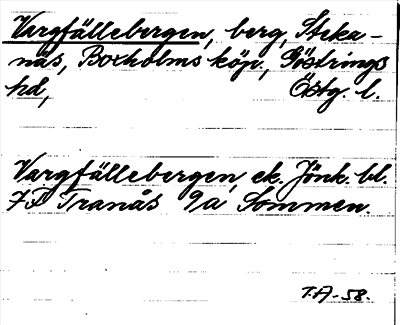 Vargfällebergen, berg, Steka-
näs, Boxholms köp., Göstrings
hd, Östg. l.
Vargfällebergen, ek. Jönk. bl.
7F Tranås 9a, Sommen.
T.A-58.